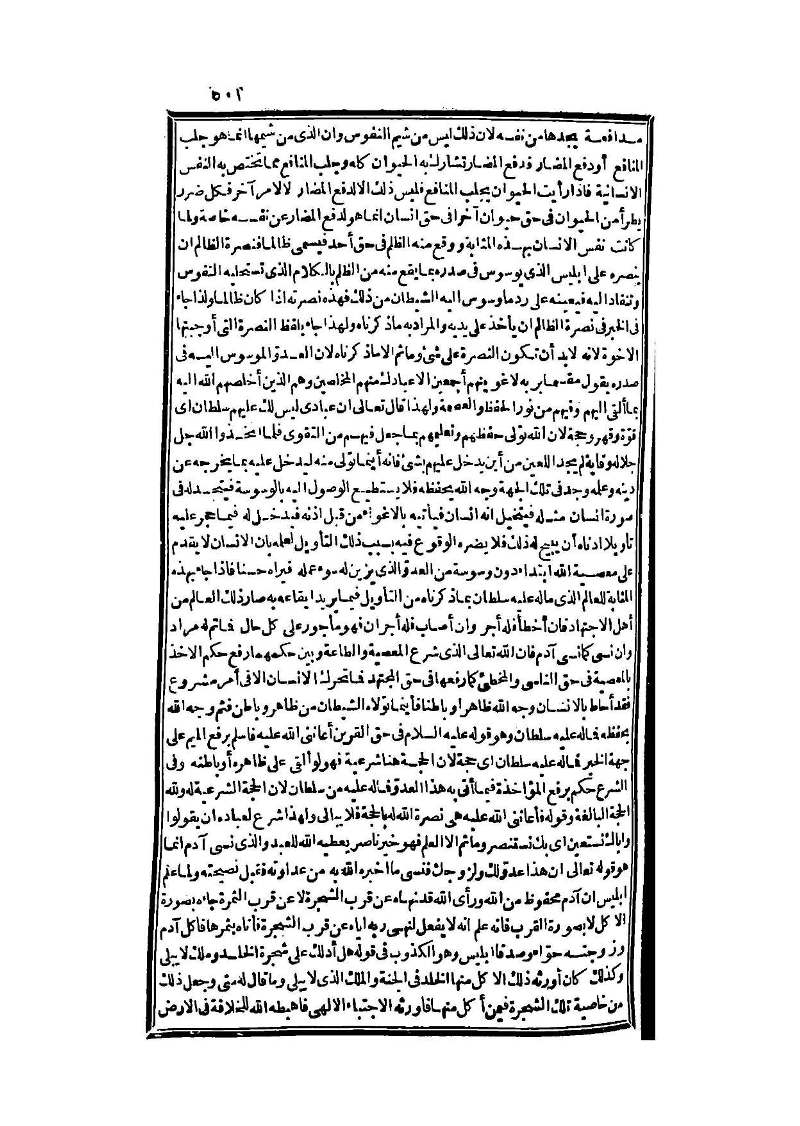 ٥٠٢
مدافعة يجدها من نفسه لان ذلك ليس من شيم النفوس وان الذى من شيمها انما هو جلب
المنافع أو دفع المضار فدفع المضار تشارك به الحيوان كله وجلب المنافع مما تختص به النفس
الانسانية فاذا رأيت الحيوان يجلب المنافع فليس ذلك الا لدفع المضار لا لامر آخر فكل ضرر
يطرأ من الحيوان فى حق حيوان آخر أو فى حق انسان انما هو لدفع المضار عن نفسه خاصة ولما
كانت نفس الانسان بهذه المثابة ووقع منه الظلم فى حق أحد فيسمى ظالما فنصرة الظالم ان
ينصره على ابليس الذى يوسوس فى صدره بما يقع منه من الظلم بالكلام الذى تستحليه النفوس
وتنقاد اليه فيعينه على رد ما وسوس اليه الشيطان من ذلك فهذه نصرته اذا كان ظالما ولذا جاء
فى الخبر فى نصرة الظالم ان يأخذ على يديه والمراد به ما ذكرناه ولهذا جاء بلفظ النصرة التى أوجبتها
الاخوة لانه لابد أن تكون النصرة على شئ وما ثم الا ما ذكرناه لان العدو الموسوس اليه فى
صدره يقول مقسما بربه لاغوينهم أجمعين الا عبادك منهم المخلصين وهم الذين أخلصهم الله اليه
بما ألقى اليهم وفيهم من نور الحفظ والعصمة ولهذا قال تعالى ان عبادى ليس لك عليهم سلطان اى
قوة وقهر وحجة لان الله تولى حفظهم وتعليمهم بما جعل فيهم من التقوى فلما اتخذوا الله جل
جلاله وقاية لم يجد اللعين من أين يدخل عليهم بشئ فانه أينما تولى منه ليدخل عليه بما يخرجه عن
دينه وعلمه وجد فى تلك الجهة وجه الله يحفظه فلا يستطيع الوصول اليه بالوسوسة فيتجسد له فى
صورة انسان مثله فيتخيل انه انسان فيأتيه بالاغواء من قبل اذنه فيدخل له فيما حجر عليه
تأويلا ادناه أن يبيح له ذلك فلا يضره الوقوع فيه بسبب ذلك التأويل لعلمه بان الانسان لا يقدم
على معصية الله ابتداء دون وسوسة من العدو الذى يزين له سوء عمله فيراه حسنا فاذا جاء بهذه
المثابة للعالم الذى ماله عليه سلطان بما ذكرناه من التأويل فيما يريد ايقاعه به صار ذلك العالم من
أهل الاجتهاد فان أخطأ فله أجر وان أصاب فله أجران فهو مأجور على كل حال فما تم له مراد
وان نسى كما نسى آدم فان الله تعالى الذى شرع المعصية والطاعة وبين حكمهما رفع حكم الاخذ
بالمعصية فى حق الناسى والمخطئ كما رفعها فى حق المجتهد فما تحرك الانسان الا فى أمر مشروع
فقد أحاط بالانسان وجه الله ظاهرا وباطنا فأينما تولاه الشيطان من ظاهر وباطن فثم وجه الله
يحفظه فماله عليه سلطان وهو قوله عليه السلام فى حق القرين أعاننى الله عليه فاسلم برفع الميم على
جهة الخبر فماله عليه سلطان اى حجة لان الحجة هنا شرعية فهو لو ألقى على ظاهره أو باطنه وفى
الشرع حكم برفع المؤاخذة فيما أتى به هذا العدو فماله عليه من سلطان لان الحجة الشرعية له ولله
الحجة البالغة وقوله فأعاننى الله عليه هى نصرة الله له بالحجة فلا يبالى ولهذا شرع لعباده ان يقولوا
واياك نستعين اى بك نستنصر وما ثم الا العلم فهو خير ناصر يعطيه الله للعبد والذى نسى آدم انما
هو قوله تعالى ان هذا عدو لك ولزوجك فنسى ما أخبره الله به من عداوته فقبل نصيحته ولما علم
ابليس ان آدم محفوظ من الله ورأى الله قد نهاه عن قرب الشجرة لا عن قرب الثمرة جاءه بصورة
الاكل لا بصورة القرب فانه علم انه لا يفعل لنهى ربه اياه عن قرب الشجرة فأتاه بثمرها فأكل آدم
وزوجته حواء وصدقا ابليس وهو الكذوب فى قوله هل أدلك على شجرة الخلد وملك لا يبلى
وكذلك كان أورثه ذلك الاكل منها الخلد فى الجنة والملك الذى لا يبلى وما قال له متى وجعل ذلك
من خاصية تلك الشجرة فيمن أكل منها فاورثه الاجتباء الالهى فاهبطه الله للخلافة فى الارض